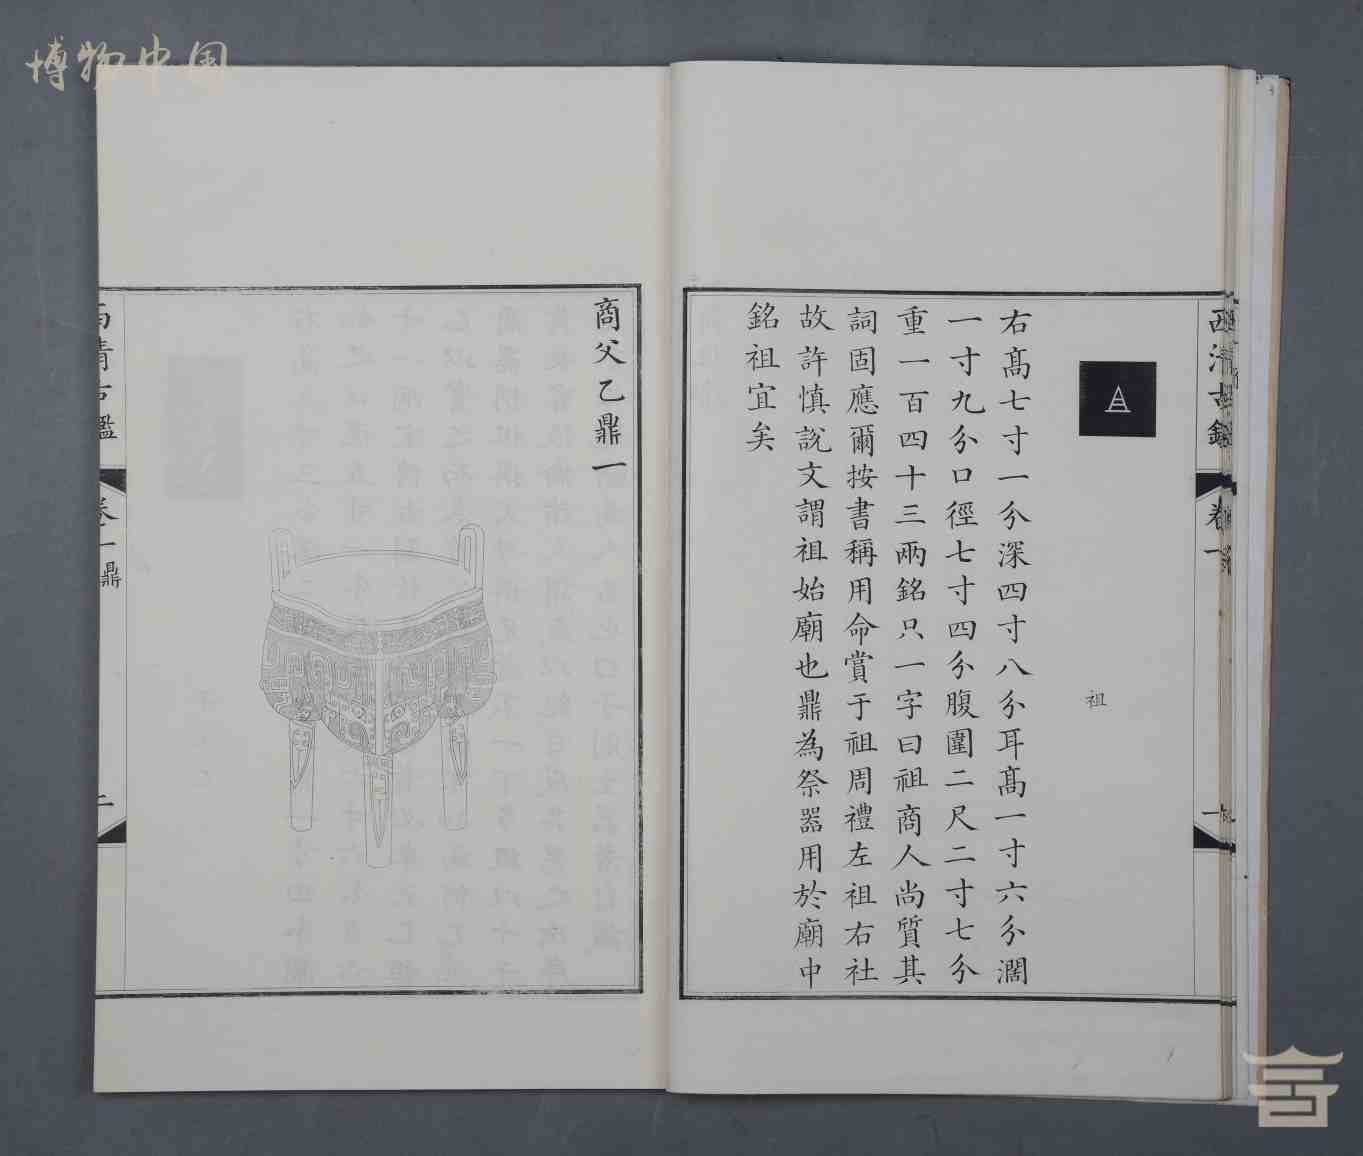 博物中国
祖
右髙七寸一分深四寸八分耳髙一寸六分濶
一寸九分口徑七寸四分腹圍二尺二寸七分
重一百四十三兩銘只一字曰祖商人尚質其
詞固應爾按書稱用命賞于祖周禮左祖右社
故許慎說文謂祖始廟也鼎為祭器用於廟中
銘祖宜矣
西清古鑑
卷一
商父乙鼎一
西清古鑑
卷一鼎
二